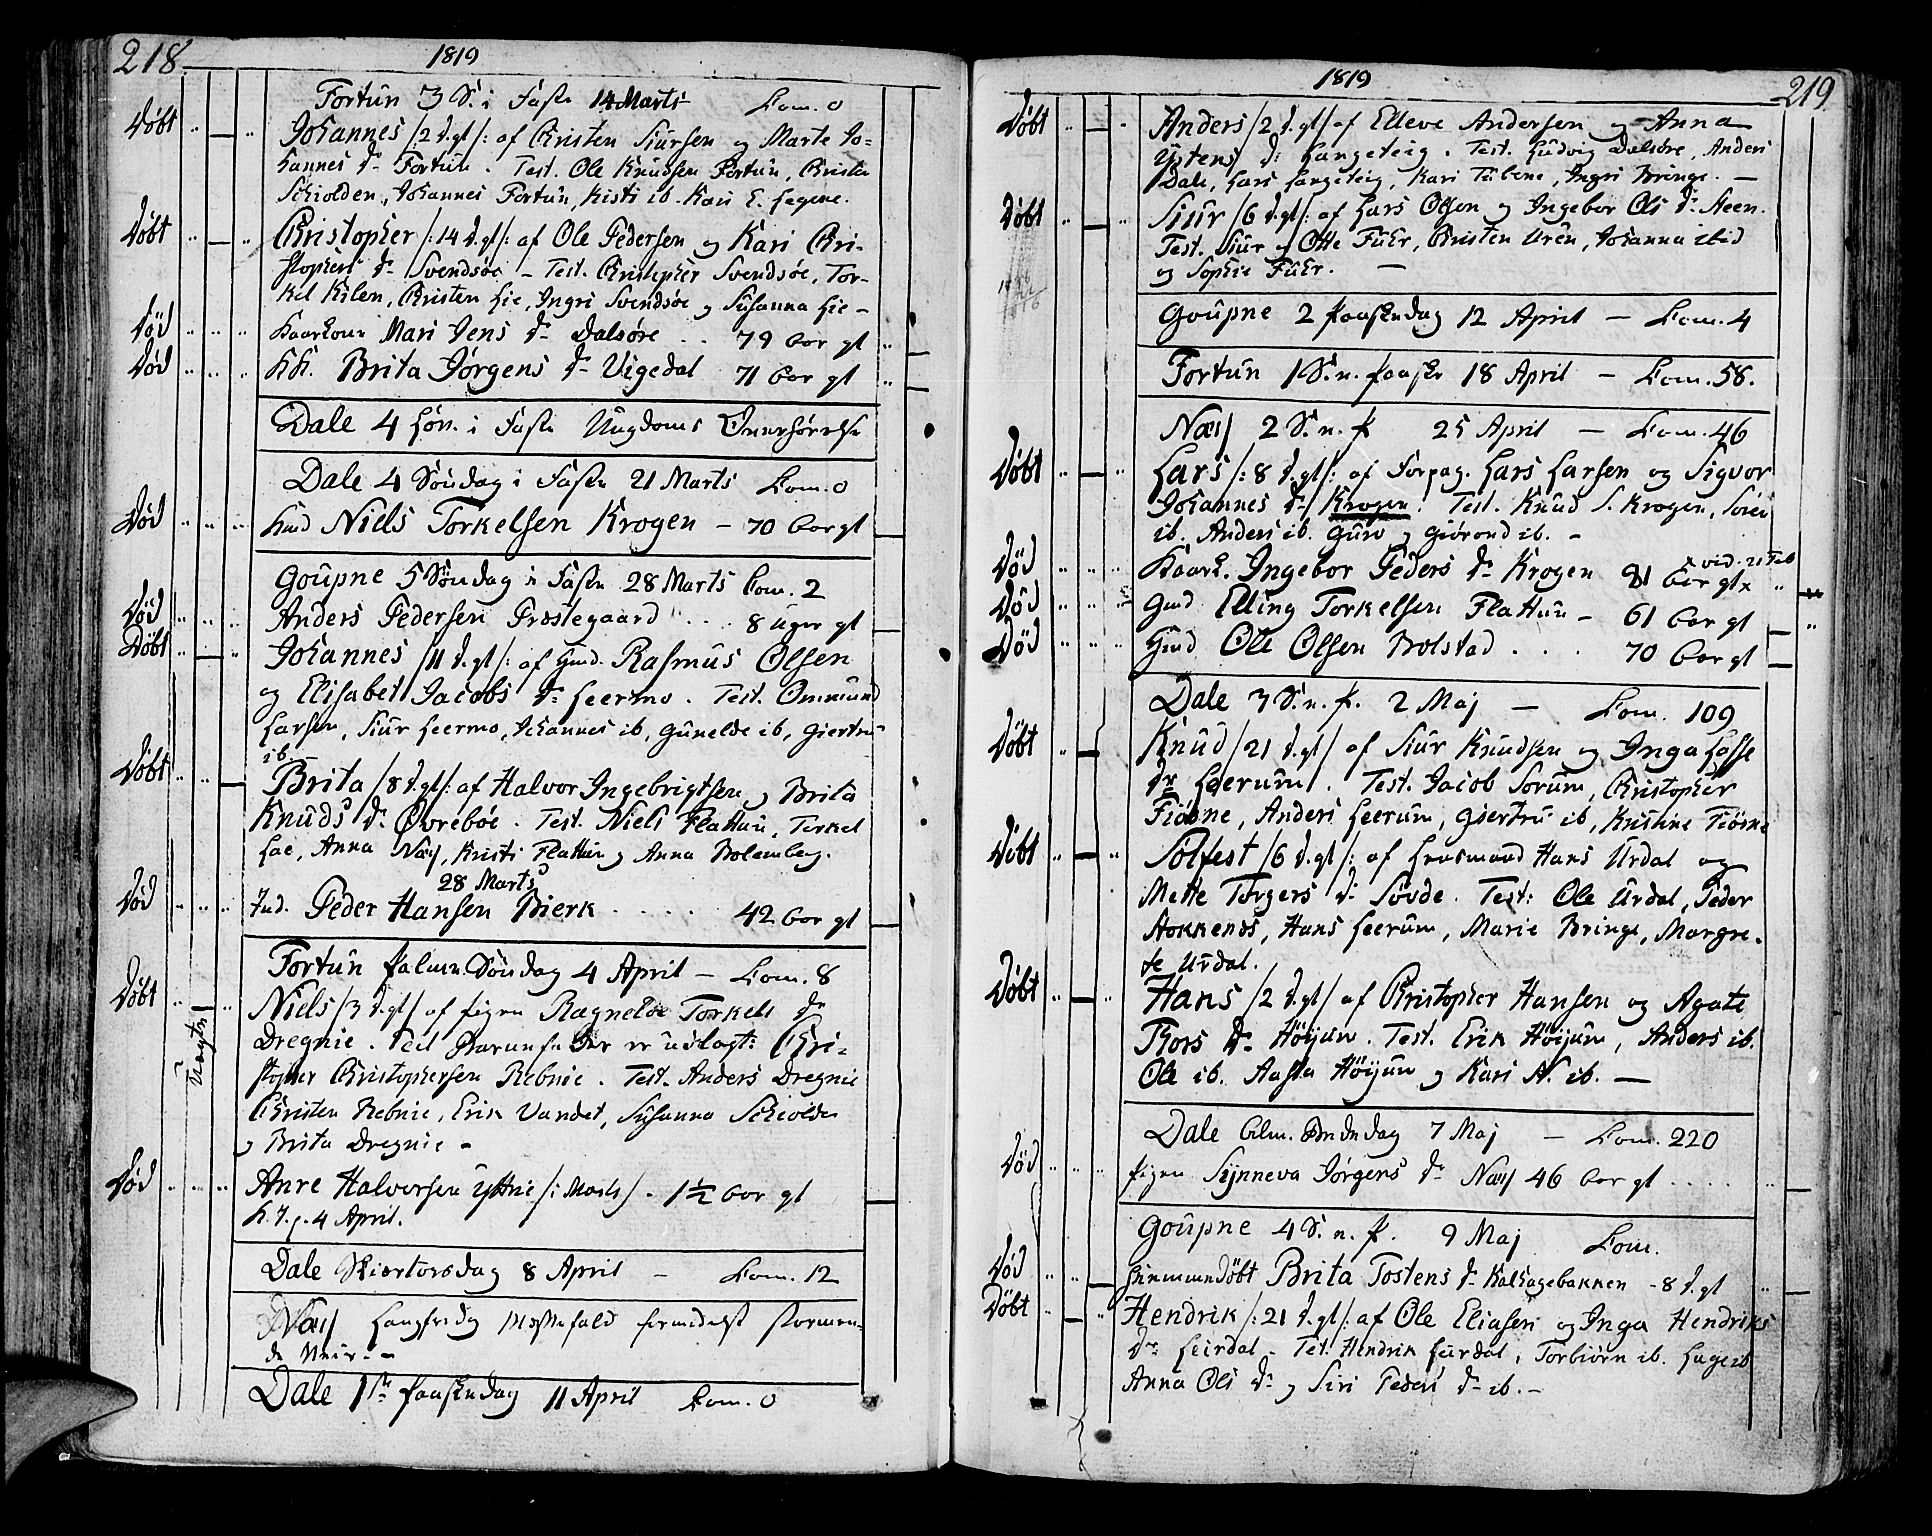 218
1819
Fortun 3 S. i Faste 14 Marts Com. 0
Døbt Johannes /:2 d. gl/: af Christen Siursen og Marte Jo-
hannes Dr Fortun. Test. Ole Knudsen Fortun, Christen
Schiolden, Johannes Fortun, Kisti ib. Kari E. Hegene.
Døbt Christopher /:14 d. gl/: af Ole Pedersen og Kari Chri-
stophers Dr Svendsøe - Test. Christopher Svendsøe, Tor-
kel Kilen, Christen Lie, Ingri Svendsøe og Susanna Lie -
Død Kaarkone Mari Jens Dr Dalsøre . . 79 Aar gl
Død KK. Brita Jørgens Dr Vigedal 71 Aar gl
Dale 4 Løv. i Faste Ungdoms Overhørelse
Dale 4 Søndag i Faste 21 Marts Com. 0
Død Huusmd Niels Torkelsen Krogen - 70 Aar gl
Goupne 5 Søndag i Faste 28 Marts Com. 2
Død Anders Pedersen Prostegaard . . . . 8 Uger gl
Døbt Johannes /11 d. gl/: af Gmd. Rasmus Olsen
og Elisabet Jacobs Dr Leermo. Test. Ommund
Larsen, Siur Leermo, Johannes ib, Gunelde ib, Giertru
ib.
Døbt Brita /8 d. gl/: af Halvor Ingebrigtsen og Brita
Knuds Dr Øvrebøe. Test. Niels Flattun, Torkel
Lae, Anna Næs, Kristi Flattun og Anna Molemberg.
28 Marts
Død Ind. Peder Hansen Bierk . . . . . 42 Aar gl
Fortun Palme Søndag 4 April - Com. 8
Døbt Niels /3 d. gl/ af Pigen Ragnelde Torkels Dr
Uægte
Dregnie. Til Barnefader er udlagt: Chri-
stopher Christophersen Rebnie. Test. Anders Dregnie
Christen Rebnie, Erik Vandet, Susanna Schiolden
og Brita Dregnie -
Død Anre Halvorsen Yttrie /: Morls/ . 1½ Aar gl
K. J. p. 4 April.
Dale Skiertorsdag 8 April - Com. 12
Næs Langfredag Messefald formedelst stormen-
de Veir. -
Dale 1ste Paaskedag 11 April Com. 0
219
1819
Døbt Anders /2 d. gl/ af Elleve Andersen og Anna
Ystens Dr Hangeteig. Test. Ludvig Dalsøre, Anders
Dale, Lars Hangeteig, Kari Tubene, Ingri Bringe. -
Døbt Siur /6 d. gl/: af Lars Olsen og Ingebor Ols Dr Steen.
Test. Siur og Otte Fuhr, Christen Uren, Johanna ibid
og Sophie Fuhr. -
Goupne 2 Paaskedag 12 April - Com. 4
Fortun 1 S. n. Paaske 18 April - Com. 58.
Næs 2 S. n. P. 25 April - Com. 46
Døbt Lars /:8 d. gl/: af Forpag. Lars Larsen og Sigvor
Johannes Dr Krogen. Test. Knud S. Krogen, Søren
ib. Anders ib. Guro og Giørond ib. -
Død Kaark. Ingebor Peders Dr Krogen 91 Aar gl x x vid. 21 Feb
Død Gmd Elling Torkelsen Flattun - 61 Aar gl
Død Gmd Ole Olsen Bolstad . . . . 70 Aar gl
Dale 3 S. n. P. 2 Maj - Com. 109
Døbt Knud /21 d. gl/ af Siur Knudsen og Inga Lasse
Dr Leerum. Test. Jacob Sorum, Christopher
Fiøsne, Anders Leerum, Giertru ib, Kristine Fiøsne
Døbt Solfest /6 d. gl/: af Huusmand Hans Urdal og
Mette Torgers Dr Søvde. Test: Ole Urdal, Peder
Stokkenos, Hans Leerum, Marie Bringe, Margre-
te Urdal.
Døbt Hans /2 d. gl/ af Christopher Hansen og Agate
Thors Dr Høijum. Test. Erik Høijum, Anders ib.
Ole ib. Aasta Høijum og Kari N. ib. -
Dale Alm. Bededag 7 Maj - Com. 220
Død Pigen Synneva Jørgens Dr Næs 46 Aar gl . . . .
Goupne 4 S. n. P. 9 Maj Com.
Død Hiemmedøbt Brita Tostens Dr Kalhagebakken - 8 d. gl
Døbt Hendrik /:21 d. gl/: af Ole Eliasen og Inga Hendriks
Dr Leirdal - Test. Hendrik Leirdal, Torbiørn ib. Lage ib
Anna Ols Dr og Siri Peders Dr ib. -